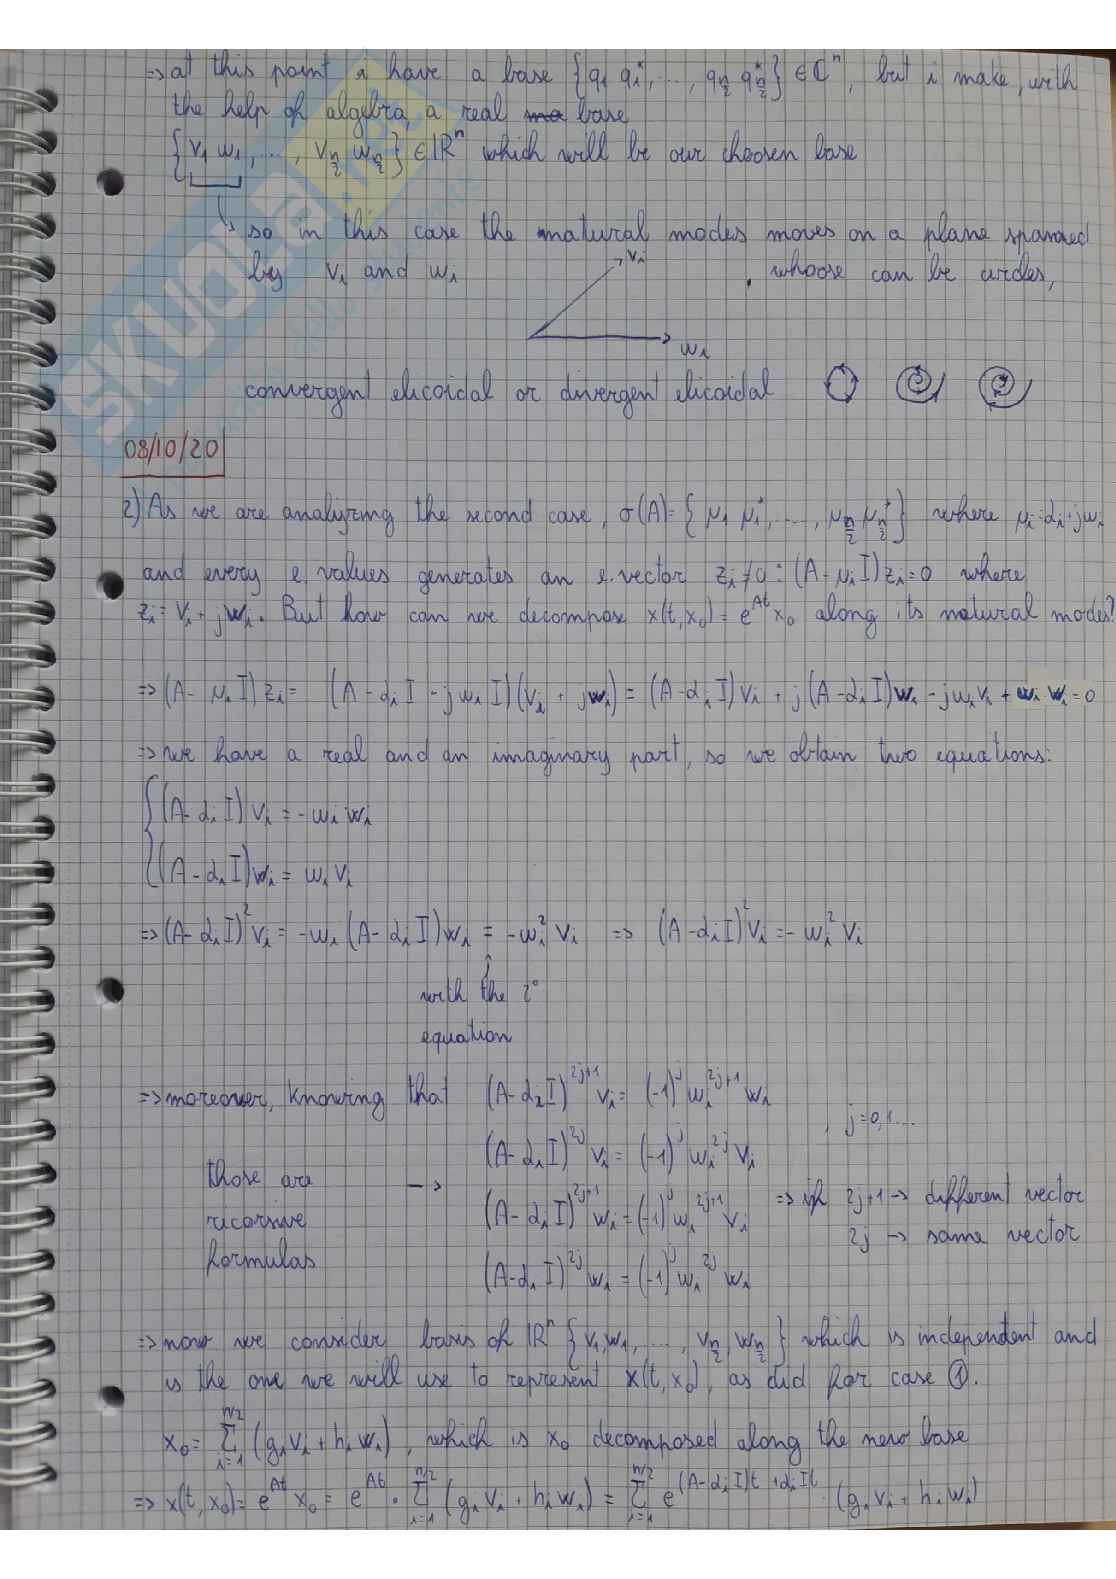 => at this point i have a base {q1 q1*, ..., qn/2 qn/2*} ∈ ℂ^n, but i make, with
the help of algebra, a real base
{v1 w1, ..., vn/2 wn/2} ∈ ℝ^n which will be our choosen base
so in this case the natural modes moves on a plane spanned
by vi and wi whoose can be circles,
vi
wi
convergent elicoidal or divergent elicoidal
08/10/20
2) As we are analizing the second case, σ(A) = {μ1 μ1*, ...., μn/2 μn/2*} where μi = αi + jωi
and every e.values generates an e.vector zi ≠ 0 : (A - μi I) zi = 0 where
zi = vi + jwi. But how can we decompose x(t, x0) = e^At x0 along its natural modes?
=> (A - μi I) zi = (A - αi I - jωi I)(vi + jwi) = (A - αi I) vi + j(A - αi I) wi - jωi vi + ωi wi = 0
=> we have a real and an imaginary part, so we obtain two equations:
{(A - αi I) vi = - ωi wi
{(A - αi I) wi = ωi vi
=> (A - αi I)^2 vi = - ωi (A - αi I) wi = - ωi^2 vi => (A - αi I)^2 vi = - ωi^2 vi
with the 2°
equation
=> moreover, knowing that (A - αi I)^2j+1 vi = (-1)^j ωi^2j+1 wi
, j = 0,1....
(A - αi I)^2j vi = (-1)^j ωi^2j vi
those are ->
ricorsive (A - αi I)^2j+1 wi = (-1)^j ωi^2j+1 vi => if 2j+1 -> different vector
2j -> same vector
formulas (A - αi I)^2j wi = (-1)^j ωi^2j wi
=> now we consider basis of ℝ^n {v1, w1, ..., vn/2, wn/2} which is independent and
is the one we will use to represent x(t, x0), as did for case ①.
x0 = Σ i=1 n/2 (gi vi + hi wi), which is x0 decomposed along the new base
=> x(t, x0) = e^At x0 = e^At · Σ i=1 n/2 (gi vi + hi wi) = Σ i=1 n/2 e^(A - αi I)t + αi It · (gi vi + hi wi)